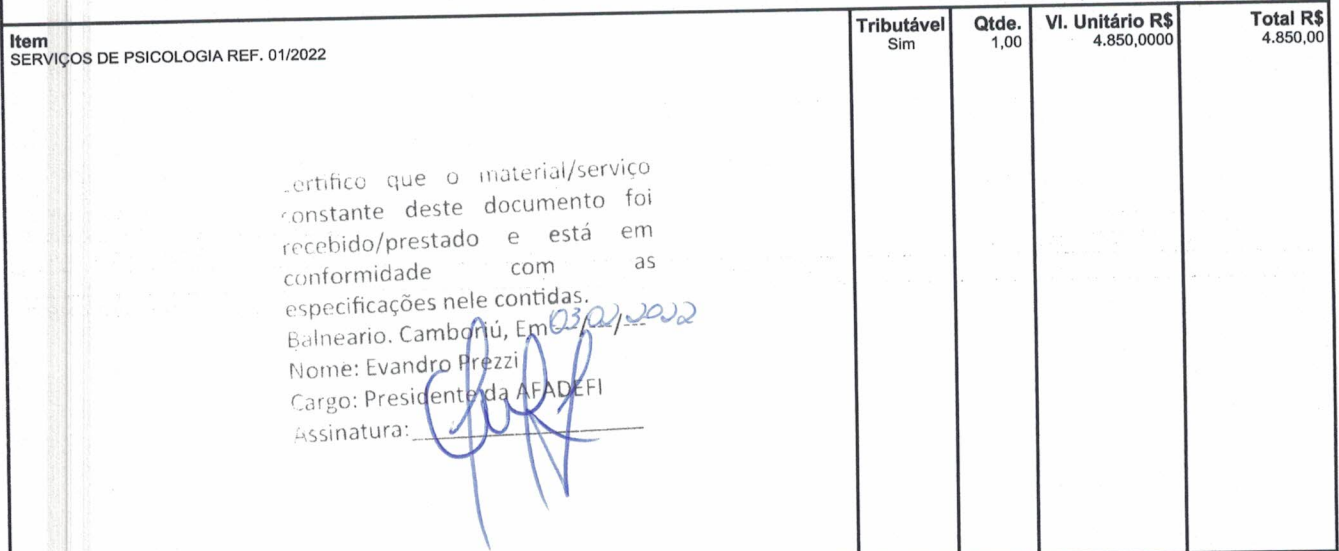 Item Tributável Qtde. Vl. Unitário R$ Total R$
SERVIÇOS DE PSICOLOGIA REF. 01/2022 Sim 1,00 4.850,0000 4.850,00
ertifico que o material/serviço
constante deste documento foi
recebido/prestado e está em
conformidade com as
especificações nele contidas.
Balneario. Camboriú, Em 03/02/2022
Nome: Evandro Prezzi
Cargo: Presidente da AFADEFI
Assinatura: